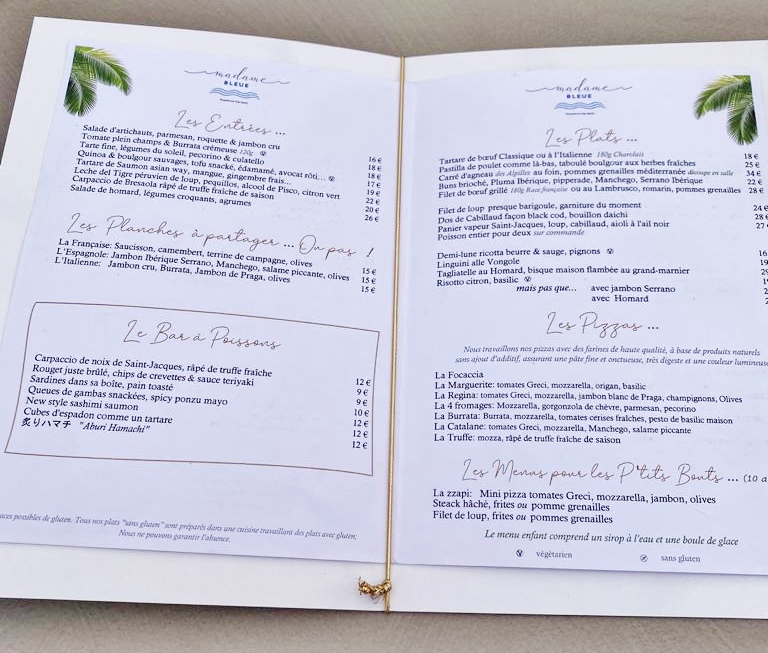 madame
BLEUE
Les Entrées ...
Salade d'artichauts, parmesan, roquette & jambon cru 16 €
Tomate plein champs & Burrata crémeuse 120g 18 €
Tarte fine, légumes du soleil, pecorino & culatello 18 €
Quinoa & boulgour sauvages, tofu snacké, édamamé, avocat rôti... 17 €
Tartare de Saumon asian way, mangue, gingembre frais... 19 €
Leche del Tigre péruvien de loup, pequillos, alcool de Pisco, citron vert 22 €
Carpaccio de Bresaola râpé de truffe fraîche de saison 20 €
Salade de homard, légumes croquants, agrumes 26 €
Les Planches à partager ... Ou pas !
La Française: Saucisson, camembert, terrine de campagne, olives 15 €
L'Espagnole: Jambon Ibérique Serrano, Manchego, salame piccante, olives 15 €
L'Italienne: Jambon cru, Burrata, Jambon de Praga, olives 15 €
Le Bar à Poissons
Carpaccio de noix de Saint-Jacques, râpé de truffe fraîche 12 €
Rouget juste brûlé, chips de crevettes & sauce teriyaki 9 €
Sardines dans sa boîte, pain toasté 9 €
Queues de gambas snackées, spicy ponzu mayo 10 €
New style sashimi saumon 12 €
Cubes d'espadon comme un tartare 12 €
炙りハマチ "Aburi Hamachi" 12 €
possibles de gluten. Tous nos plats "sans gluten" sont préparés dans une cuisine travaillant des plats avec gluten;
Nous ne pouvons garantir l'absence.
madame
BLEUE
Les Plats ...
Tartare de bœuf Classique ou à l'Italienne 180g Charolais 18 €
Pastilla de poulet comme là-bas, taboulé boulgour aux herbes fraîches 25 €
Carré d'agneau des Alpilles au foin, pommes grenailles méditerranée découpe en salle 34 €
Buns brioché, Pluma Ibérique, pipperade, Manchego, Serrano Ibérique 22 €
Filet de bœuf grillé 180g Race française ou au Lambrusco, romarin, pommes grenailles 28 €
Filet de loup presque barigoule, garniture du moment 24 €
Dos de Cabillaud façon black cod, bouillon daichi 28 €
Panier vapeur Saint-Jacques, loup, cabillaud, aioli à l'ail noir 27
Poisson entier pour deux sur commande
Demi-lune ricotta beurre & sauge, pignons 16
Linguini alle Vongole
Tagliatelle au Homard, bisque maison flambée au grand-marnier
Risotto citron, basilic
mais pas que... avec jambon Serrano
avec Homard
Les Pizzas ...
Nous travaillons nos pizzas avec des farines de haute qualité, à base de produits naturels
sans ajout d'additif, assurant une pâte fine et onctueuse, très digeste et une couleur lumineuse
La Focaccia
La Marguerite: tomates Greci, mozzarella, origan, basilic
La Regina: tomates Greci, mozzarella, jambon blanc de Praga, champignons, Olives
La 4 fromages: Mozzarella, gorgonzola de chèvre, parmesan, pecorino
La Burrata: Burrata, mozzarella, tomates cerises fraîches, pesto de basilic maison
La Catalane: tomates Greci, mozzarella, Manchego, salame piccante
La Truffe: mozza, râpé de truffe fraîche de saison
Les Menus pour les P'tits Bouts ... (10 a
La zzapi: Mini pizza tomates Greci, mozzarella, jambon, olives
Steack hâché, frites ou pomme grenailles
Filet de loup, frites ou pommes grenailles
Le menu enfant comprend un sirop à l'eau et une boule de glace
végétarien sans gluten